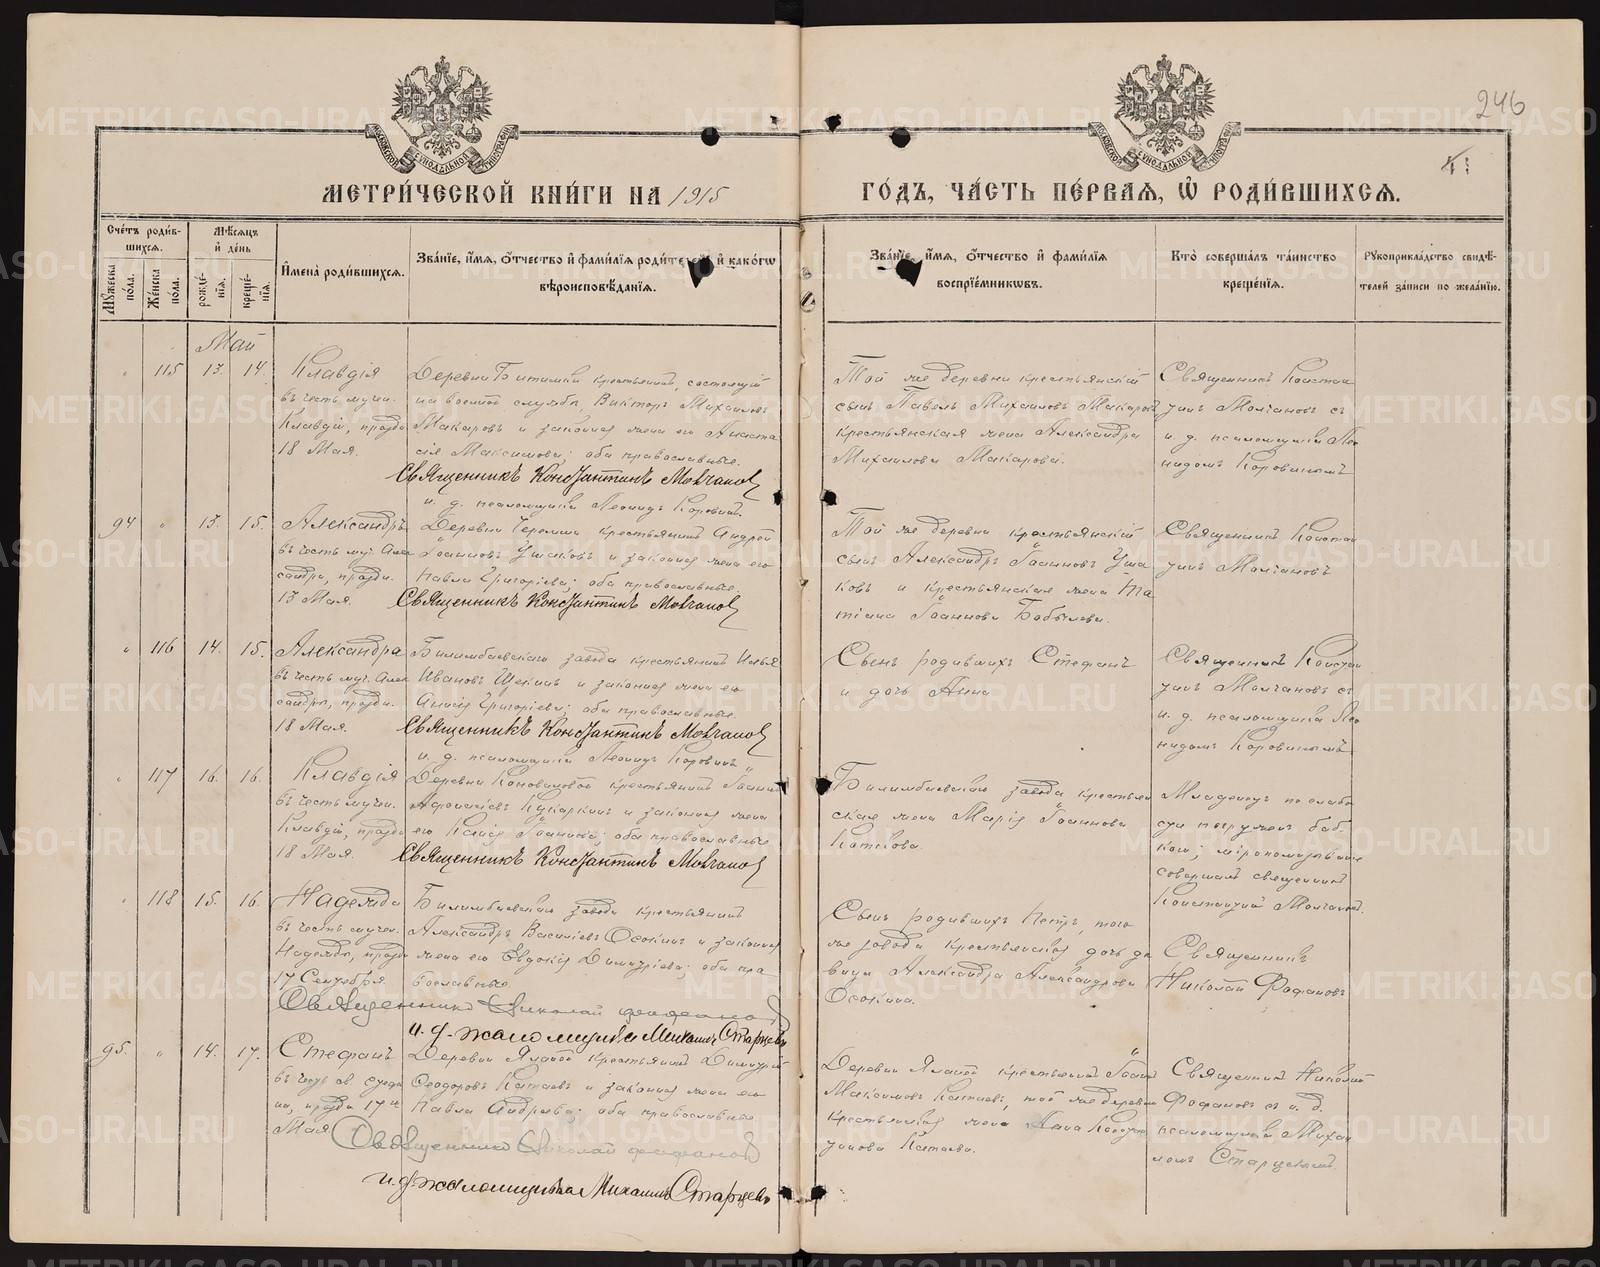 246
МЕТРИ́ЧЕСКОЙ КНИ́ГИ НА 1915
ГО́ДЪ, ЧА́СТЬ ПЕ́РВАЯ, Ѡ҆ РОДИ́ВШИХСѦ.
Сче́тъ роди́в-
шихсѧ.
Мꙋ́жеска по́ла.
Же́нска по́ла.
Мѣ́сѧцъ и҆ де́нь
рожде́-
нїѧ.
креще́-
нїѧ.
И҆мена̀ роди́вшихсѧ.
Зва́нїе, и҆́мѧ, ѻ҆́тчество и҆ фами́лїѧ роди́телей, и҆ како́гѡ
вѣроисповѣ́данїѧ.
Зва́нїе, и҆́мѧ, ѻ҆́тчество и҆ фами́лїѧ
воспрїе́мникѡвъ.
Кто̀ соверша́лъ та́инство
креще́нїѧ.
Рꙋкоприкла́дство свидѣ́-
телей за́писи по жела́нїю.
Май
115 13. 14.
Клавдія
въ честь мучен.
Клавдіи, праздн
18 Мая.
Деревни Битимки крестьянинъ, состоящій
на военной службѣ, Викторъ Михаиловъ
Макаровъ и законная жена его Анаста
сія Максимова; оба православные.
Священникъ Константинъ Молчановъ
и. д. псаломщика Леонидъ Коровинъ.
Той же деревни крестьянскій
сынъ Павелъ Михаиловъ Макаровъ
крестьянская жена Александра
Михаилова Макарова.
Священникъ Констан
тинъ Молчановъ съ
и. д. псаломщика Лео
нидомъ Коровинымъ
94 " 13. 15.
Александръ
въ честь муч. Алек
сандра, праздн.
13 Мая.
Деревни Черемши крестьянинъ Андрей
Іоанновъ Ушаковъ и законная жена его
Павла Григоріева; оба православные.
Священникъ Константинъ Молчановъ
Той же деревни крестьянскій
сынъ Александръ Іоанновъ Уша
ковъ и крестьянская жена Та
тіана Іоаннова Бабылева.
Священникъ Констан
тинъ Молчановъ
" 116 14. 15.
Александра
въ честь муч. Алек
сандры, праздн.
18 Мая.
Билимбаевскаго завода крестьянинъ Илья
Ивановъ Щекинъ и законная жена его
Анисія Григоріева; оба православные.
Священникъ Константинъ Молчановъ
и. д. псаломщика Леонидъ Коровинъ
Сынъ родившихъ Стефанъ
и дочь Анна
Священникъ Констан
тинъ Молчановъ съ
и. д. псаломщика Лео
нидомъ Коровинымъ
" 117 16. 16.
Клавдія
въ честь мучен.
Клавдіи, праздн
18 Мая.
Деревни Коноваловой крестьянинъ Іоаннъ
Афонасіевъ Кукаркинъ и законная жена
его Іоаннова; оба православные
Священникъ Константинъ Молчановъ
Билимбаевскаго завода крестьян
ская жена Марія Іоаннова
Каткова.
Младенецъ по слабо
сти погруженъ баб-
кою; міропомазываніе
совершалъ священникъ
Константинъ Молчановъ.
" 118 15. 16.
Надежда
въ честь мучен.
Надежды, праздн
17 Сентября.
Билимбаевскаго завода крестьянинъ
Александръ Василіевъ Осокинъ и законная
жена его Евдокія Димитріева; оба пра
вославные
Священникъ Николай Фофановъ
и. д. псаломщика Михаилъ Старцевъ
Сынъ родившихъ Петръ, того
же завода крестьянская дочь дѣ
вица Александра Александрова
Осокина.
Священникъ
Николай Фофановъ
95. " 14. 17.
Стефанъ
въ честь св Стефа
на, праздн 17 го
Мая
Деревни Еланой крестьянинъ Димитрій
Ѳеодоровъ Катаевъ и законная жена его
Павла Андреева; оба православные
Священникъ Николай Фофановъ
и. д. псаломщика Михаилъ Старцевъ
Деревни Еланой крестьянинъ Іоаннъ
Максимовъ Катаевъ, той же деревни
крестьянская жена Анна
Катаева.
Священникъ Николай
Фофановъ съ и. д.
псаломщика Михаи
ломъ Старцевымъ.